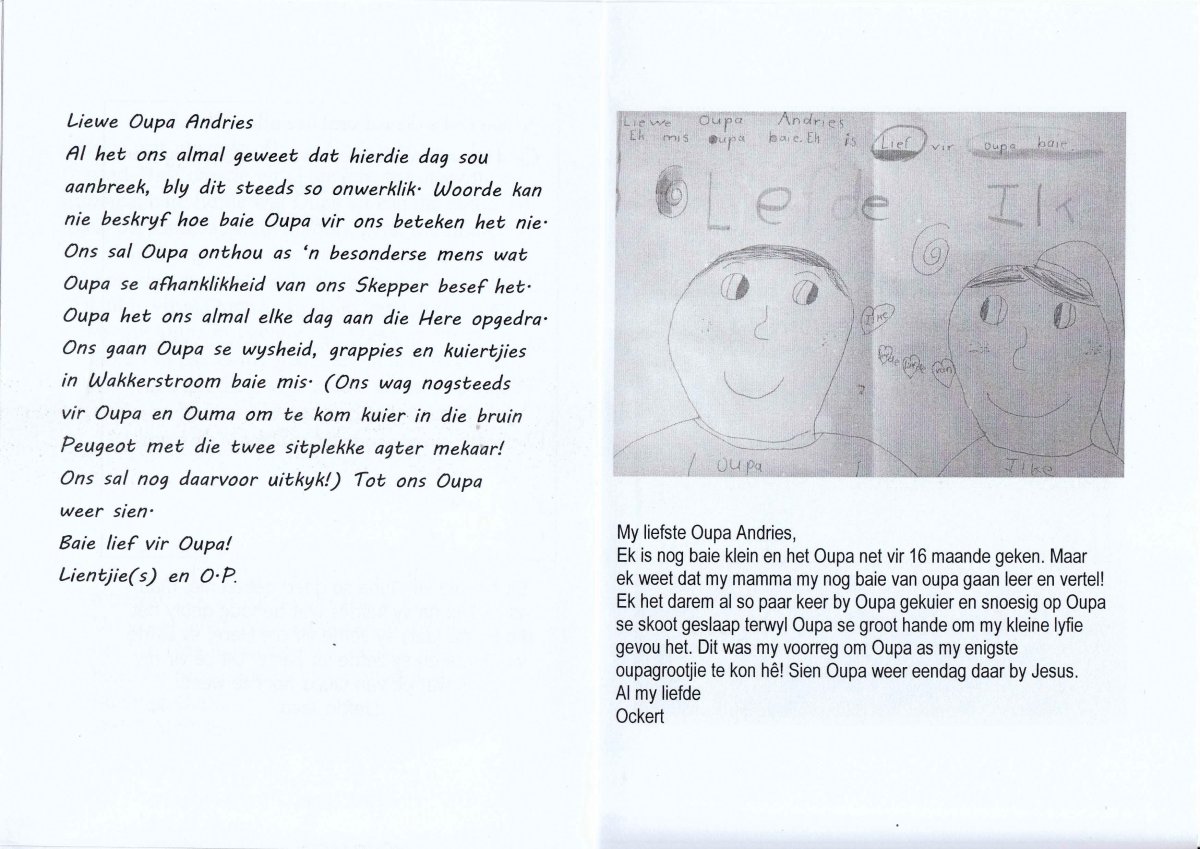 Liewe Oupa Andries
Al het ons almal geweet dat hierdie dag sou
aanbreek, bly dit steeds so onwerklik. Woorde kan
nie beskryf hoe baie Oupa vir ons beteken het nie.
Ons sal Oupa onthou as 'n besonderse mens wat
Oupa se afhanklikheid van ons Skepper besef het.
Oupa het ons almal elke dag aan die Here opgedra.
Ons gaan Oupa se wysheid, grappies en kuiertjies
in Wakkerstroom baie mis. (Ons wag nogsteeds
vir Oupa en Ouma om te kom kuier in die bruin
Peugeot met die twee sitplekke agter mekaar!
Ons sal nog daarvoor uitkyk!) Tot ons Oupa
weer sien.
Baie lief vir Oupa!
Lientjie(s) en O.P.
Liewe Oupa Andries
Ek mis oupa baie. Ek is Lief vir oupa baie
Oupa
Ilke
My liefste Oupa Andries,
Ek is nog baie klein en het Oupa net vir 16 maande geken. Maar
ek weet dat my mamma my nog baie van oupa gaan leer en vertel!
Ek het darem al so paar keer by Oupa gekuier en snoesig op Oupa
se skoot geslaap terwyl Oupa se groot hande om my kleine lyfie
gevou het. Dit was my voorreg om Oupa as my enigste
oupagrootjie te kon hê! Sien Oupa weer eendag daar by Jesus.
Al my liefde
Ockert